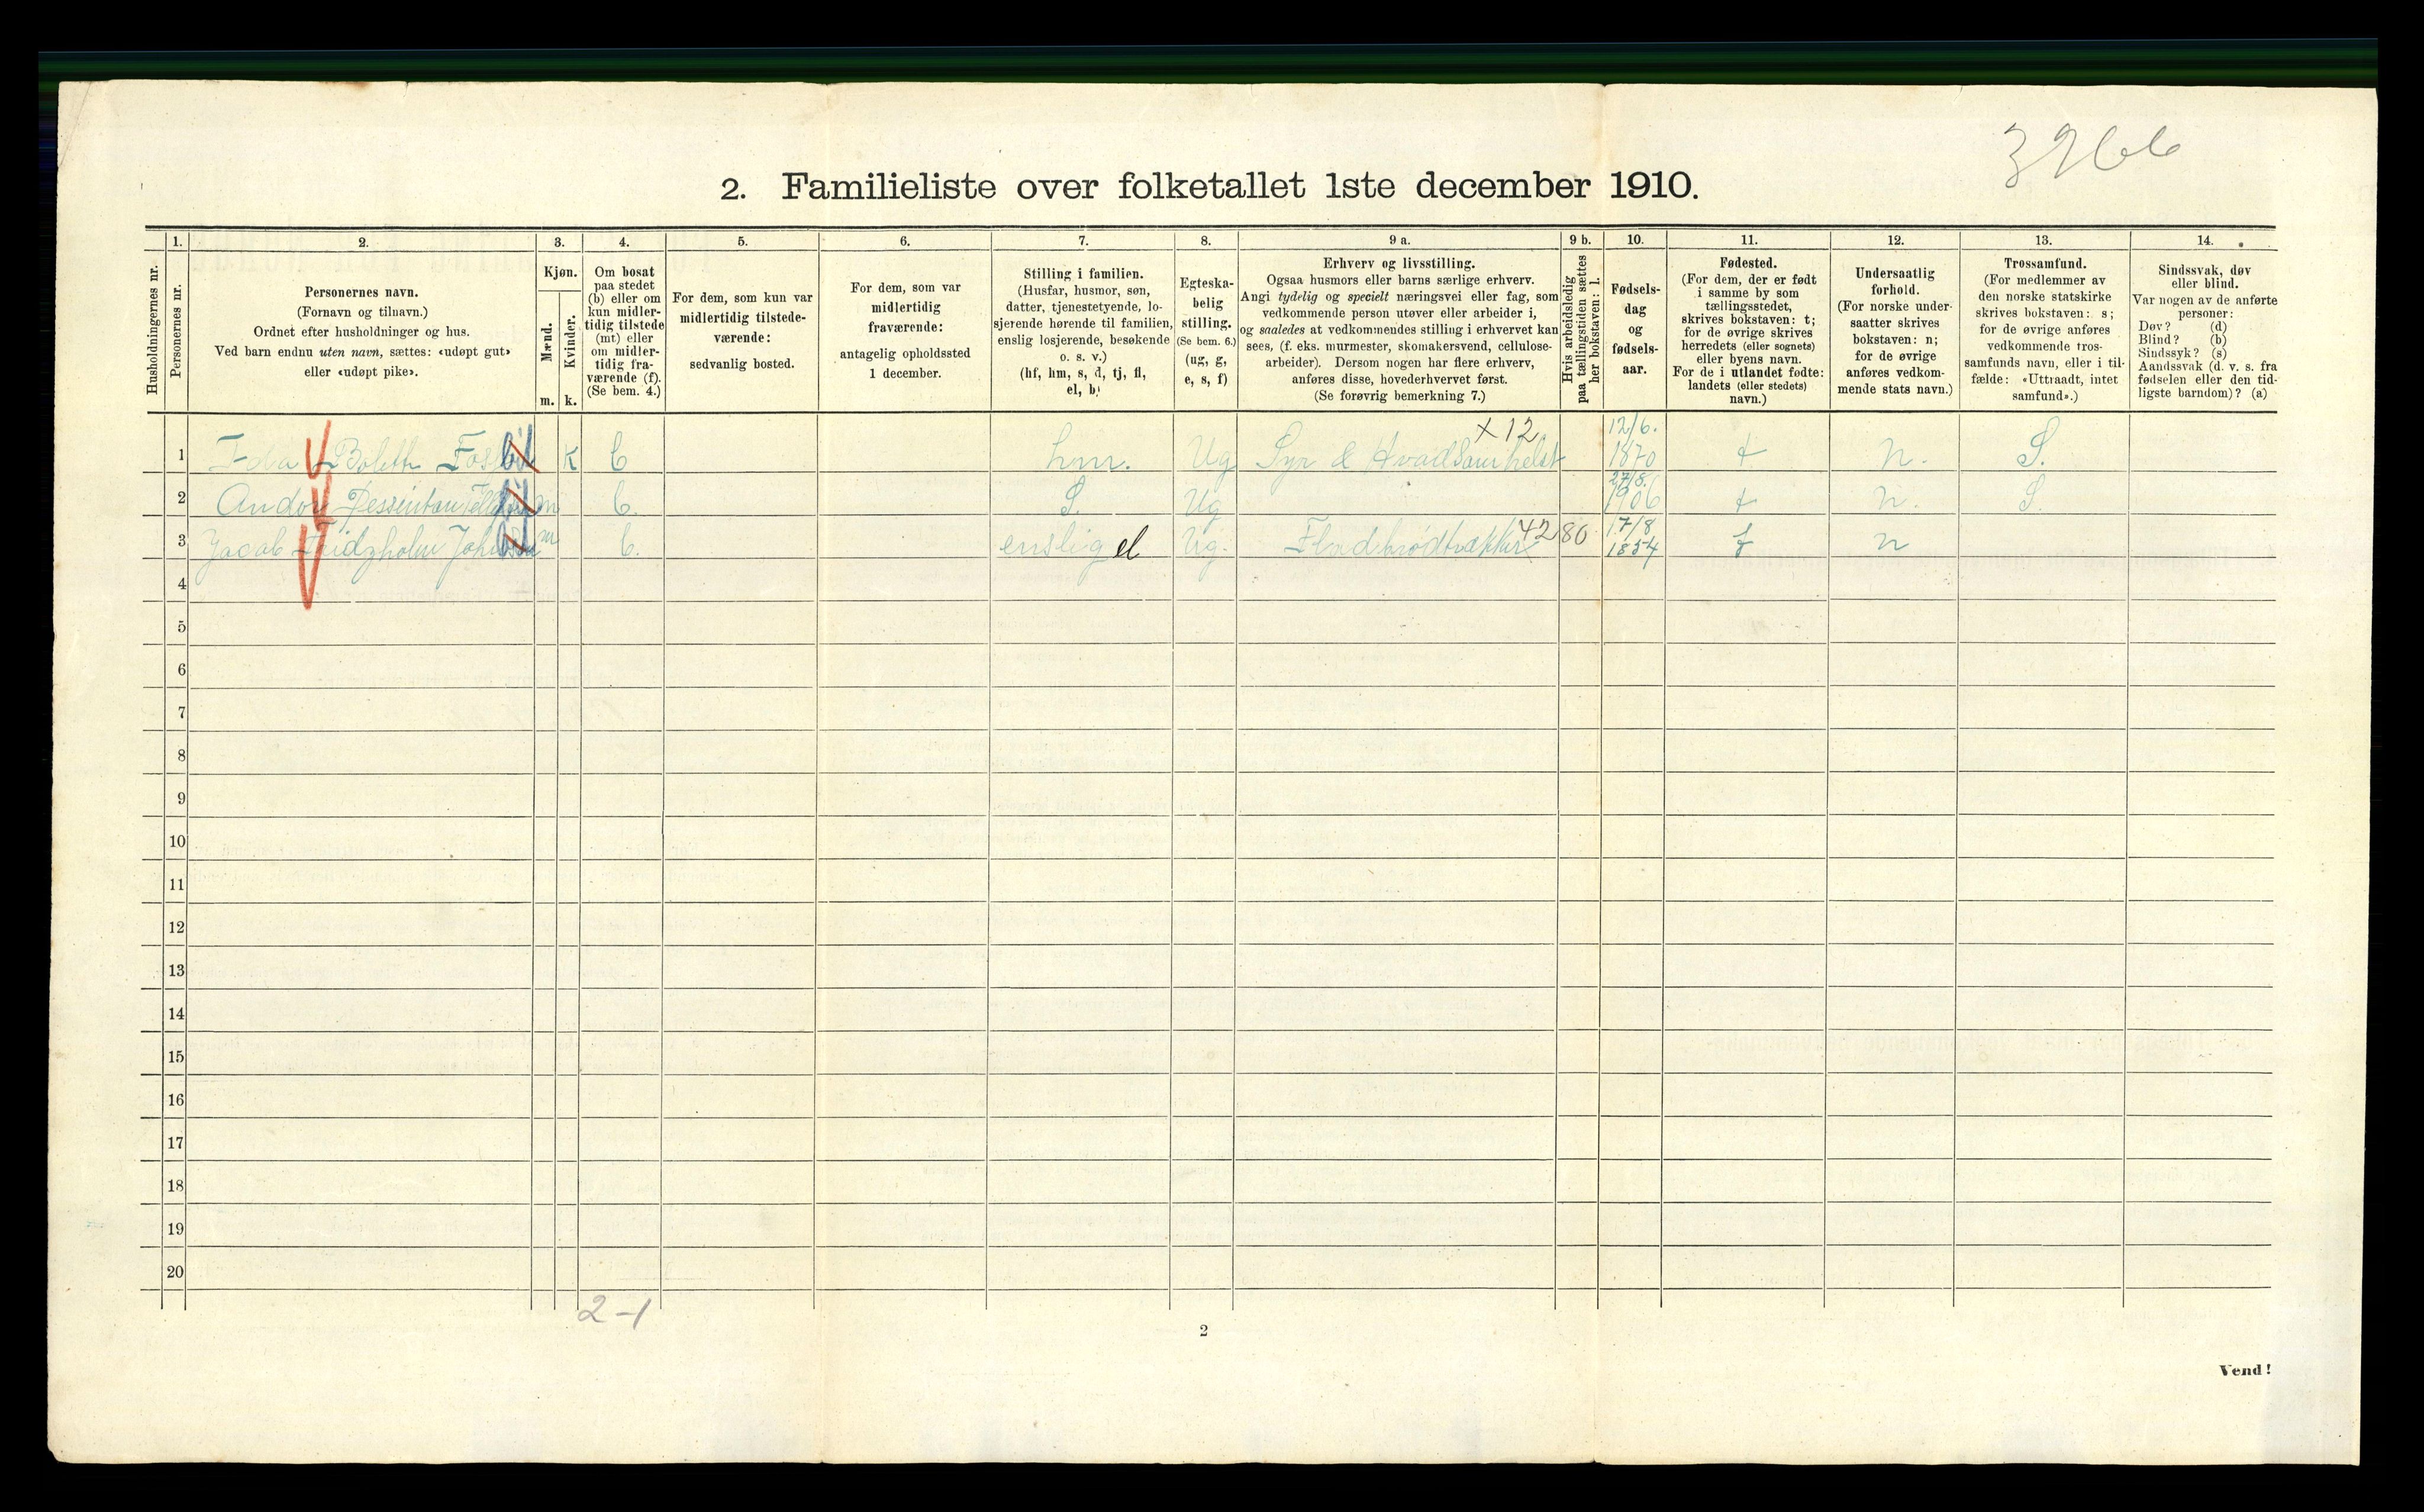 3966
2. Familieliste over folketallet 1ste december 1910.
Husholdningernes nr.
1.
Personernes nr.
2.
Personernes navn.
(Fornavn og tilnavn.)
Ordnet efter husholdninger og hus.
Ved barn endnu uten navn, sættes: «udøpt gut»
eller «udøpt pike».
3.
Kjøn.
Mænd.
Kvinder.
m. k.
4.
Om bosat
paa stedet
(b) eller om
kun midler-
tidig tilstede
(mt) eller
om midler-
tidig fra-
værende (f).
(Se bem. 4.)
5.
For dem, som kun var
midlertidig tilstede-
værende:
sedvanlig bosted.
6.
For dem, som var
midlertidig
fraværende:
antagelig opholdssted
1 december.
7.
Stilling i familien.
(Husfar, husmor, søn,
datter, tjenestetyende, lo-
sjerende hørende til familien,
enslig losjerende, besøkende
o. s. v.)
(hf, hm, s, d, tj, fl,
el, b)
8.
Egteska-
belig
stilling.
(Se bem. 6.)
(ug, g,
e, s, f)
9 a.
Erhverv og livsstilling.
Ogsaa husmors eller barns særlige erhverv.
Angi tydelig og specielt næringsvei eller fag, som
vedkommende person utøver eller arbeider i,
og saaledes at vedkommendes stilling i erhvervet kan
sees, (f. eks. murmester, skomakersvend, cellulose-
arbeider). Dersom nogen har flere erhverv,
anføres disse, hovederhvervet først.
(Se forøvrig bemerkning 7.)
9 b.
Hvis arbeidsledig
paa tællingstiden sættes
her bokstaven: l.
10.
Fødsels-
dag
og
fødsels-
aar.
11.
Fødested.
(For dem, der er født
i samme by som
tællingsstedet,
skrives bokstaven: t;
for de øvrige skrives
herredets (eller sognets)
eller byens navn.
For de i utlandet fødte:
landets (eller stedets)
navn.)
12.
Undersaatlig
forhold.
(For norske under-
saatter skrives
bokstaven: n;
for de øvrige
anføres vedkom-
mende stats navn.)
13.
Trossamfund.
(For medlemmer av
den norske statskirke
skrives bokstaven: s;
for de øvrige anføres
vedkommende tros-
samfunds navn, eller i til-
fælde: «Uttraadt, intet
samfund».)
14.
Sindssvak, døv
eller blind.
Var nogen av de anførte
personer:
Døv? (d)
Blind? (b)
Sindssyk? (s)
Aandssvak (d. v. s. fra
fødselen eller den tid-
ligste barndom)? (a)
x 12 12/6.
1 Ida Boleth K b hm. Ug Syr & Hvadsomhelst 1870 t n. S.
27/8.
2 Andor m b. S. Ug 1906 t n. S.
4280 17/8
3 Jacob m b. enslig el Ug. Fladbrødtrækker 1854 t n
4
5
6
7
8
9
10
11
12
13
14
15
16
17
18
19
20
2-1
2
Vend!